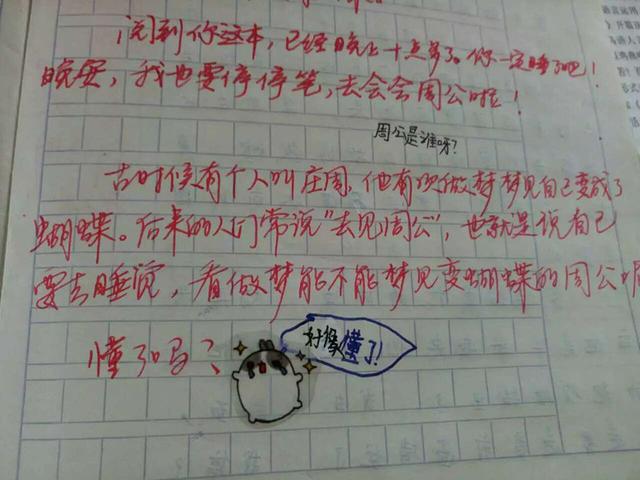 阅到你这本，已经晚上十点多了。你一定睡了吧！
晚安，我也要停停笔，去会会周公啦！
周公是谁呀？
古时候有个人叫庄周，他有次做梦梦见自己变成了
蝴蝶。后来的人们常说“去见周公”，也就是说自己
要去睡觉，看做梦能不能梦见变蝴蝶的周公呢
懂了吗？
好像懂了！